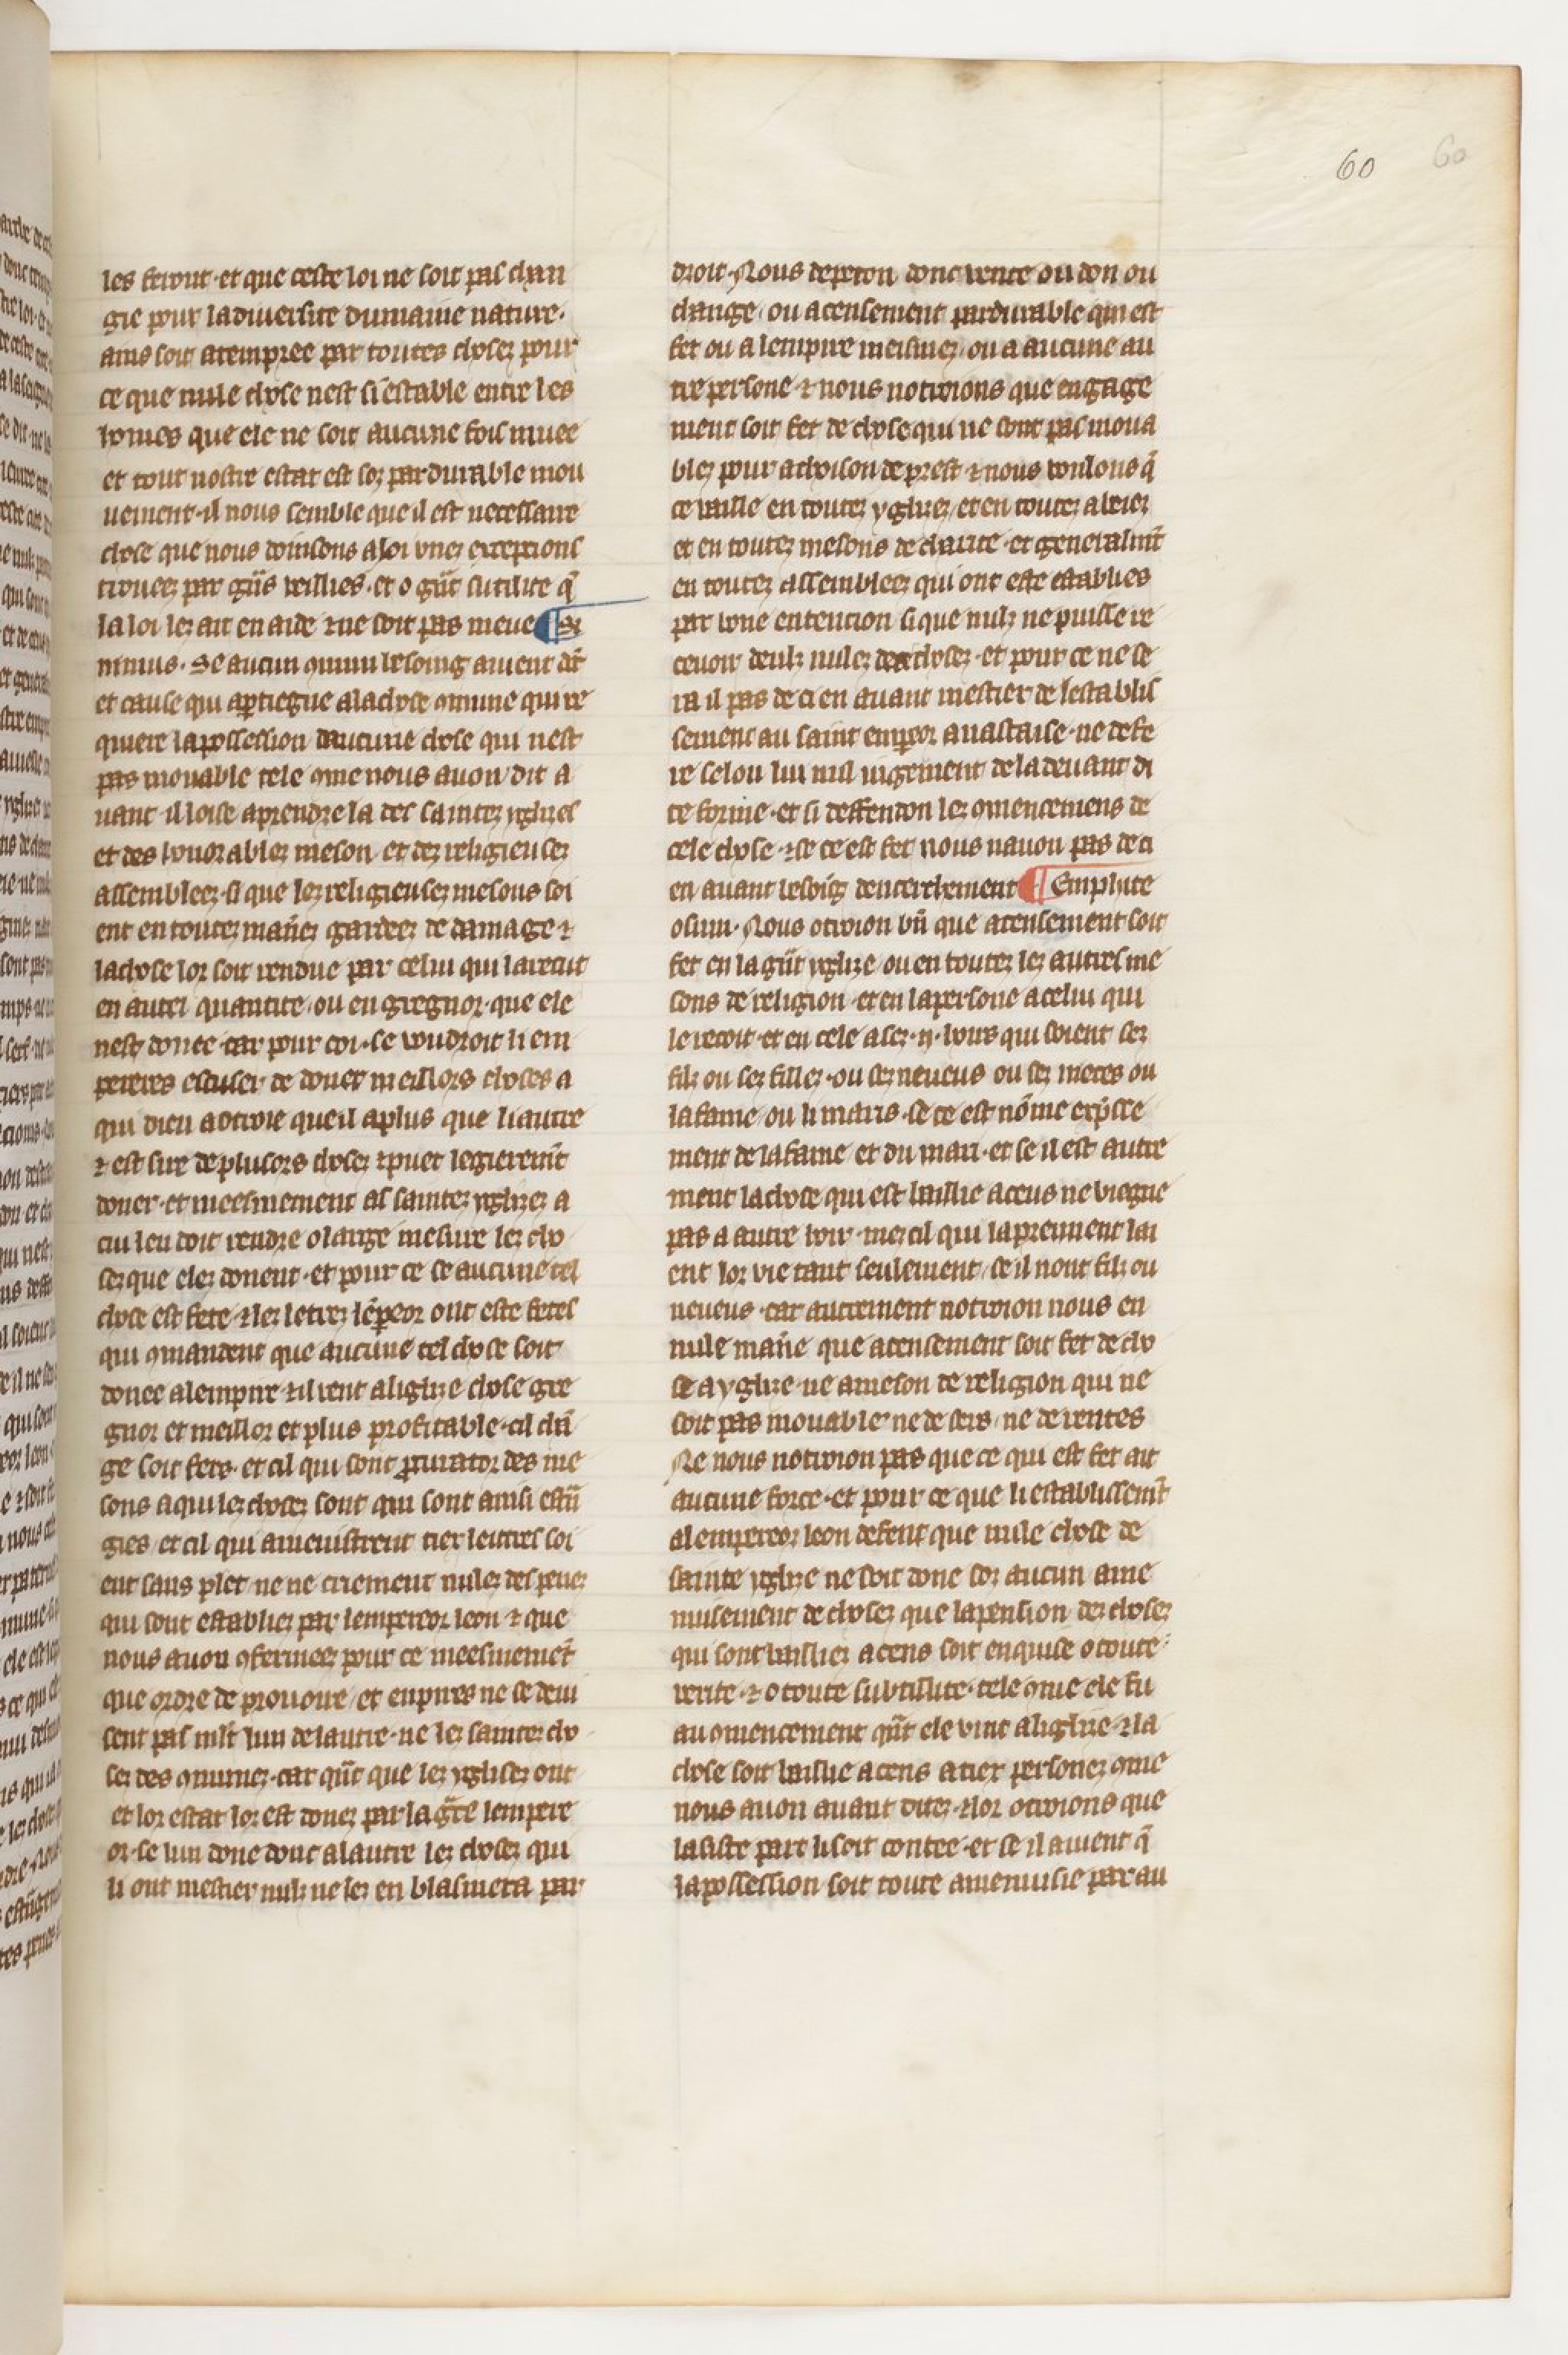 60 60
les feront · et que ceste loi ne soit pas chan
gie pour la diversite dumaine nature ·
ains soit atempree par toutes choses pour
ce que nule chose nest si estable entre les
homes que ele ne soit aucune fois muee
et tout nostre estat est soz pardurable mou
uement · il nous semble que il est necessaire
chose que nous doinsons a loi unes exceptions
trouees par gñs veillies · et o gñt sutilite q̃
la loi les ait en aide ⁊ ne soit pas meue ¶ Si
minus · Se aucun qmun besoing auient dr̃
et cause qui aptiegne a la chose qmune qui re
quiere la possession daucune chose qui nest
pas mouable tele qme nous auon dit a
uant · il loise a prendre la des saintes yglises
et des honorables meson et des religieuses
assemblees · si que les religieuses mesons soi
ent en toutes mañes gardees de damage ⁊
la chose lor soit rendue par celui qui la recut
en autel quantite ou en gregnor · que ele
nest donee · car pour coi · se voudroit li em
pereres escuser de doner meillors choses a
qui dieu a otroie que il a plus que li autre
⁊ est sire de plusors choses ⁊ puet legierem̃t
doner · et meesmement as saintes yglises a
cui len doit rendre o large mesure les cho
ses que eles donent · et pour ce se aucune tel
chose est fete ⁊ les letres lẽpeor ont este fetes
qui qmandent que aucune tel chose soit
donee a lempire ⁊ il rent a liglise chose gre
gnor et meillor et plus profitable · cil chã
ge soit fers · et cil qui sont p̱curator des me
sons a qui les choses sont qui sont ainsi estñ
gies et cil qui amenistrent tiex leitres soi
ent sans plet ne ne criement nules des penes
qui sont establies par lempereor leon ⁊ que
nous auon qfermees pour ce meesmemẽt
que ordre de prouoire et enpires ne se deui
sent pas ml̃t lun de lautre · ne les saintes cho
ses des qmunes · car qñt que les yglises ont
et lor estat lor est donez par la gr̃ce lempere
or · se lun done donc a lautre les choses qui
li ont mestier nulz ne les en blasmera par
droit · Nous deperon donc vente ou don ou
change ou acensement pardurable qui est
fet ou a lempire meismes ou a aucune au
tre persone ⁊ nous notroions que engage
ment soit fet de chose qui ne sont pas moua
bles pour achoison de prest ⁊ nous voulons q̃
ce vaille en toutes yglises et en toutes abeies
et en toutes mesons de charite · et generalm̃t
en toutes assemblees qui ont este establies
par bone entencion si que nulz ne puisse re
cevoir deulz nules des choses · et pour ce ne se
ra il pas de ci en auant mestier de lestablis
sement au saint emperor anastaise · ne defe
re selon lui nul iugement de la deuant di
te forme · et si deffendon les qmencemens de
cele chose · ⁊ se ce est fet nous nauon pas de ci
en auant besoig dencerchement ¶ Emphite
osim · Nous otroion bñ que acensement soit
fet en la gñt yglise ou en toutes les autres me
sons de religion · et en la persone a celui qui
le recoit · et en cele a ses · ij · hoirs qui soient ses
filz ou ses filles · ou ses neueus ou ses nieces ou
la fame ou li maris · se ce est nõme exp̃sse
ment de la fame et du mari · et se il est autre
ment la chose qui est baillie a ceus ne viegne
pas a autre hoir · mes cil qui la prennent lai
ent lor vie tant seulement se il nont filz ou
neueus · car autrement notroion nous en
nule mañe que acensement soit fet de cho
se a yglise · ne a meson de religion qui ne
soit pas mouable ne de sers ne de rentes
Ne nous notroion pas que ce qui est fet ait
aucune force · et pour ce que li establissem̃t
a lempereor leon defent que nule chose de
sainte yglise ne soit done soz aucun ame
nuisement de choses que la pension des choses
qui sont baillies a cens soit enquise o toute
verite · ⁊ o toute subtillite · tele qme ele fu
au qmencement qñt ele vint a liglise ⁊ la
chose soit baillie a cens a tiex persones qme
nous auon auant dites · ⁊ lor otroions que
la siste part li soit contee · et se il auient q̃
la possession soit toute amenuisie par au